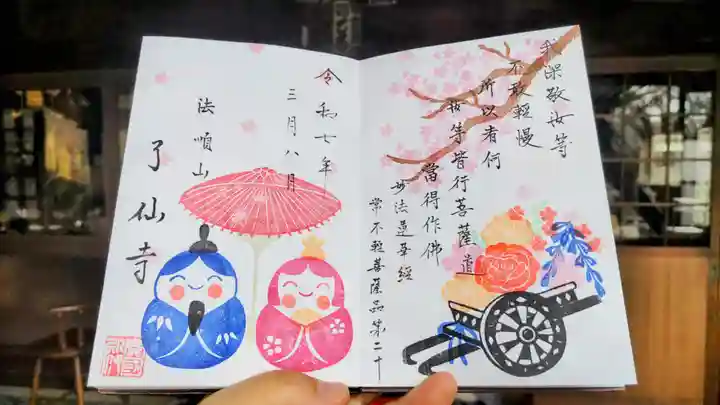 我深敬汝等
不敢輕慢
所以者何
汝等皆行菩薩道
當得作佛
妙法蓮華經
常不輕菩薩品第二十
令和七年
三月八月
法順山
了仙寺